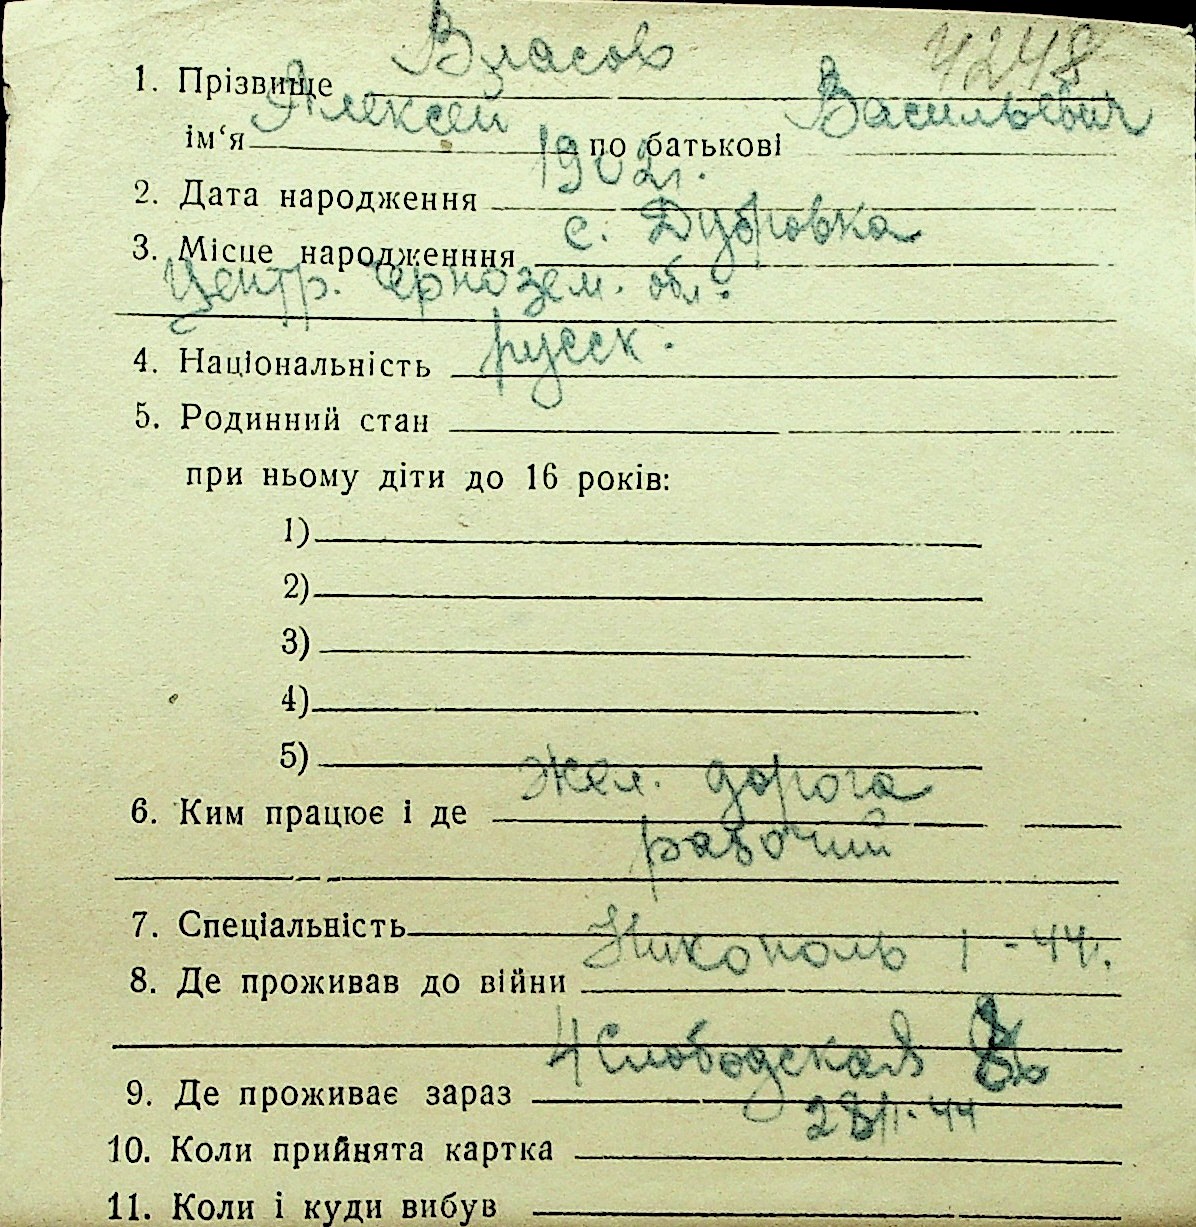 4248
1. Прізвище Власов
ім‘я Алексей по батькові Васильевич
2. Дата народження 1902 г.
3. Місце народженння с. Дубровка
Центр. Чернозем. обл.
4. Національність русск.
5. Родинний стан
при ньому діти до 16 років:
1)
2)
3)
4)
5)
6. Ким працює і де Жел. дорога
рабочий
7. Спеціальність
8. Де проживав до війни Никополь 1 - 44.
9. Де проживає зараз 4 Слободская
10. Коли прийнята картка 28/II-44
11. Коли і куди вибув